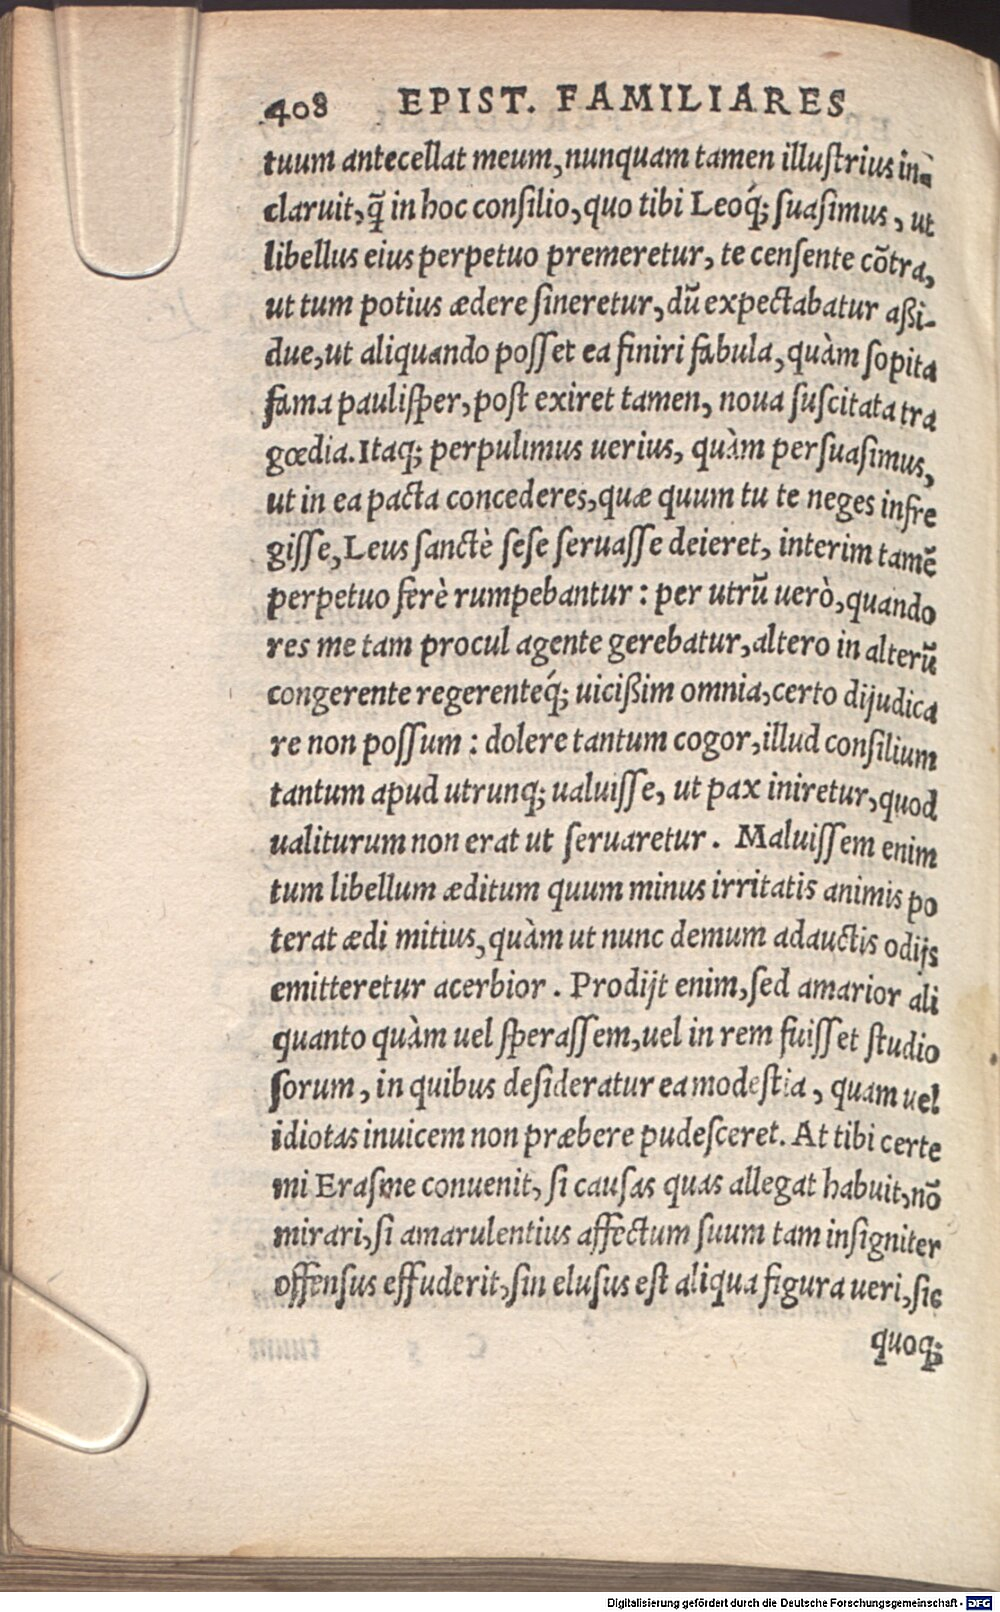 408 EPIST. FAMILIARES
tuum antecellat meum, nunquam tamen illuſtrius in-
claruit, q̃ in hoc conſilio, quo tibi Leoq́; ſuaſimus, ut
libellus eius perpetuo premeretur, te cenſente cõtra,
ut tum potius ædere ſineretur, dũ expectabatur aßi-
due, ut aliquando poſſet ea finiri fabula, quàm ſopita
fama pauliſper, poſt exiret tamen, noua ſuſcitata tra
gœdia. Itaq; perpulimus uerius, quàm perſuaſimus,
ut in ea pacta concederes, quæ quum tu te neges infre
giſſe, Leus ſanctè ſeſe ſeruaſſe deieret, interim tamẽ
perpetuo ferè rumpebantur : per utrũ uerò, quando
res me tam procul agente gerebatur, altero in alterũ
congerente regerenteq́; uicißim omnia, certo dijudica
re non poſſum : dolere tantum cogor, illud conſilium
tantum apud utrunq; ualuiſſe, ut pax iniretur, quod
ualiturum non erat ut ſeruaretur. Maluiſſem enim
tum libellum æditum quum minus irritatis animis po
terat ædi mitius, quàm ut nunc demum adauctis odijs
emitteretur acerbior. Prodijt enim, ſed amarior ali
quanto quàm uel ſperaſſem, uel in rem fuiſſet ſtudio
ſorum, in quibus deſideratur ea modeſtia, quam uel
idiotas inuicem non præbere pudeſceret. At tibi certe
mi Eraſme conuenit, ſi cauſas quas allegat habuit, nõ
mirari, ſi amarulentius affectum ſuum tam inſigniter
offenſus effuderit, ſin eluſus eſt aliqua figura ueri, ſic
quoq;
Digitalisierung gefördert durch die Deutsche Forschungsgemeinschaft - DFG